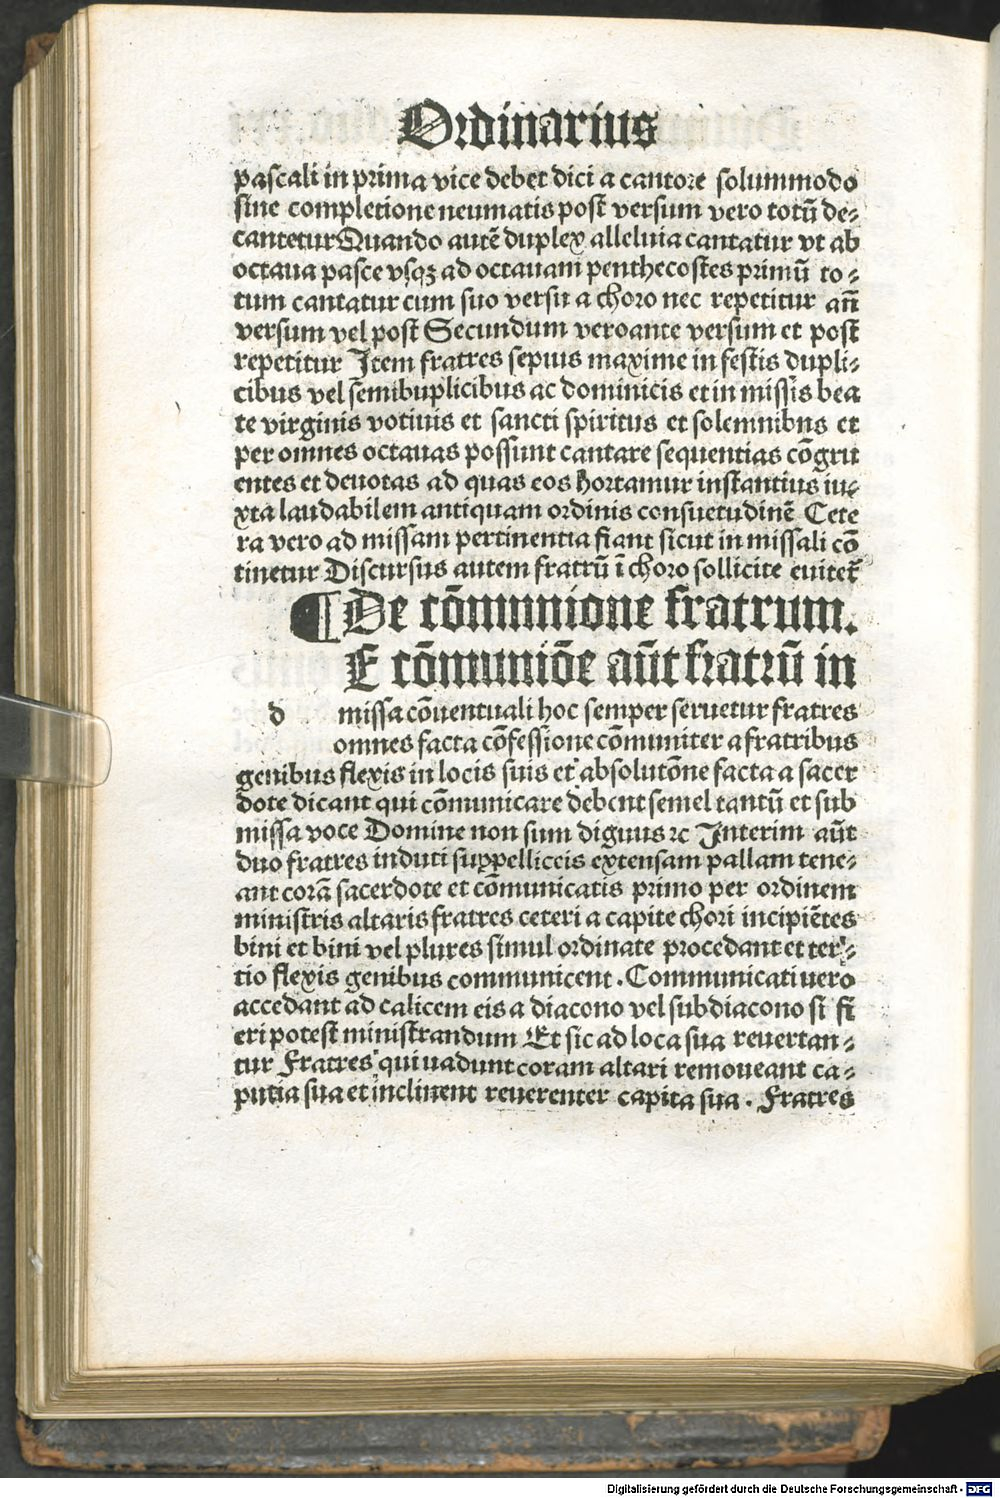 Ordinarius
pascali in prima vice debet dici a cantore solummodo
sine completione neumatis post versum vero totū de⸗
cantetur Quando autē duplex alleluia cantatur vt ab
octaua pasce vsqꝫ ad octauam penthecostes primū to⸗
tum cantatur cum suo versu a choro nec repetitur añ
versum vel post Secundum veroante versum et post
repetitur Item fratres sepius maxime in festis dupli⸗
cibus vel semibuplicibus ac dominicis et in missis bea
te virginis votiuis et sancti spiritus et solemnibus et
per omnes octauas possunt cantare sequentias cōgru
entes et deuotas ad quas eos hortamur instantius iu⸗
xta laudabilem antiquam ordinis consuetudinē Cete
ra vero ad missam pertinentia fiant sicut in missali cō
tinetur Discursus autem fratrū ī choro sollicite euitet̄
¶ De cōmunione fratrum.
E cōmuniōe aūt fratrū in
d missa cōuentuali hoc semper seruetur fratres
omnes facta cōfessione cōmuniter a fratribus
genibus flexis in locis suis et absolutōne facta a sacer
dote dicant qui cōmunicare debent semel tantū et sub
missa voce Domine non sum dignus ⁊c Interim aūt
duo fratres induti suppelliceis extensam pallam tene⸗
ant corā sacerdote et cōmunicatis primo per ordinem
ministris altaris fratres ceteri a capite chori incipiētes
bini et bini vel plures simul ordinate procedant et ter⸗
tio flexis genibus communicent . Communicati uero
accedant ad calicem eis a diacono vel subdiacono si fi
eri potest ministrandum Et sic ad loca sua reuertan⸗
tur Fratres qui uadunt coram altari remoueant ca⸗
putia sua et inclinent reuerenter capita sua . Fratres
Digitalisierung gefördert durch die Deutsche Forschungsgemeinschaft - DFG